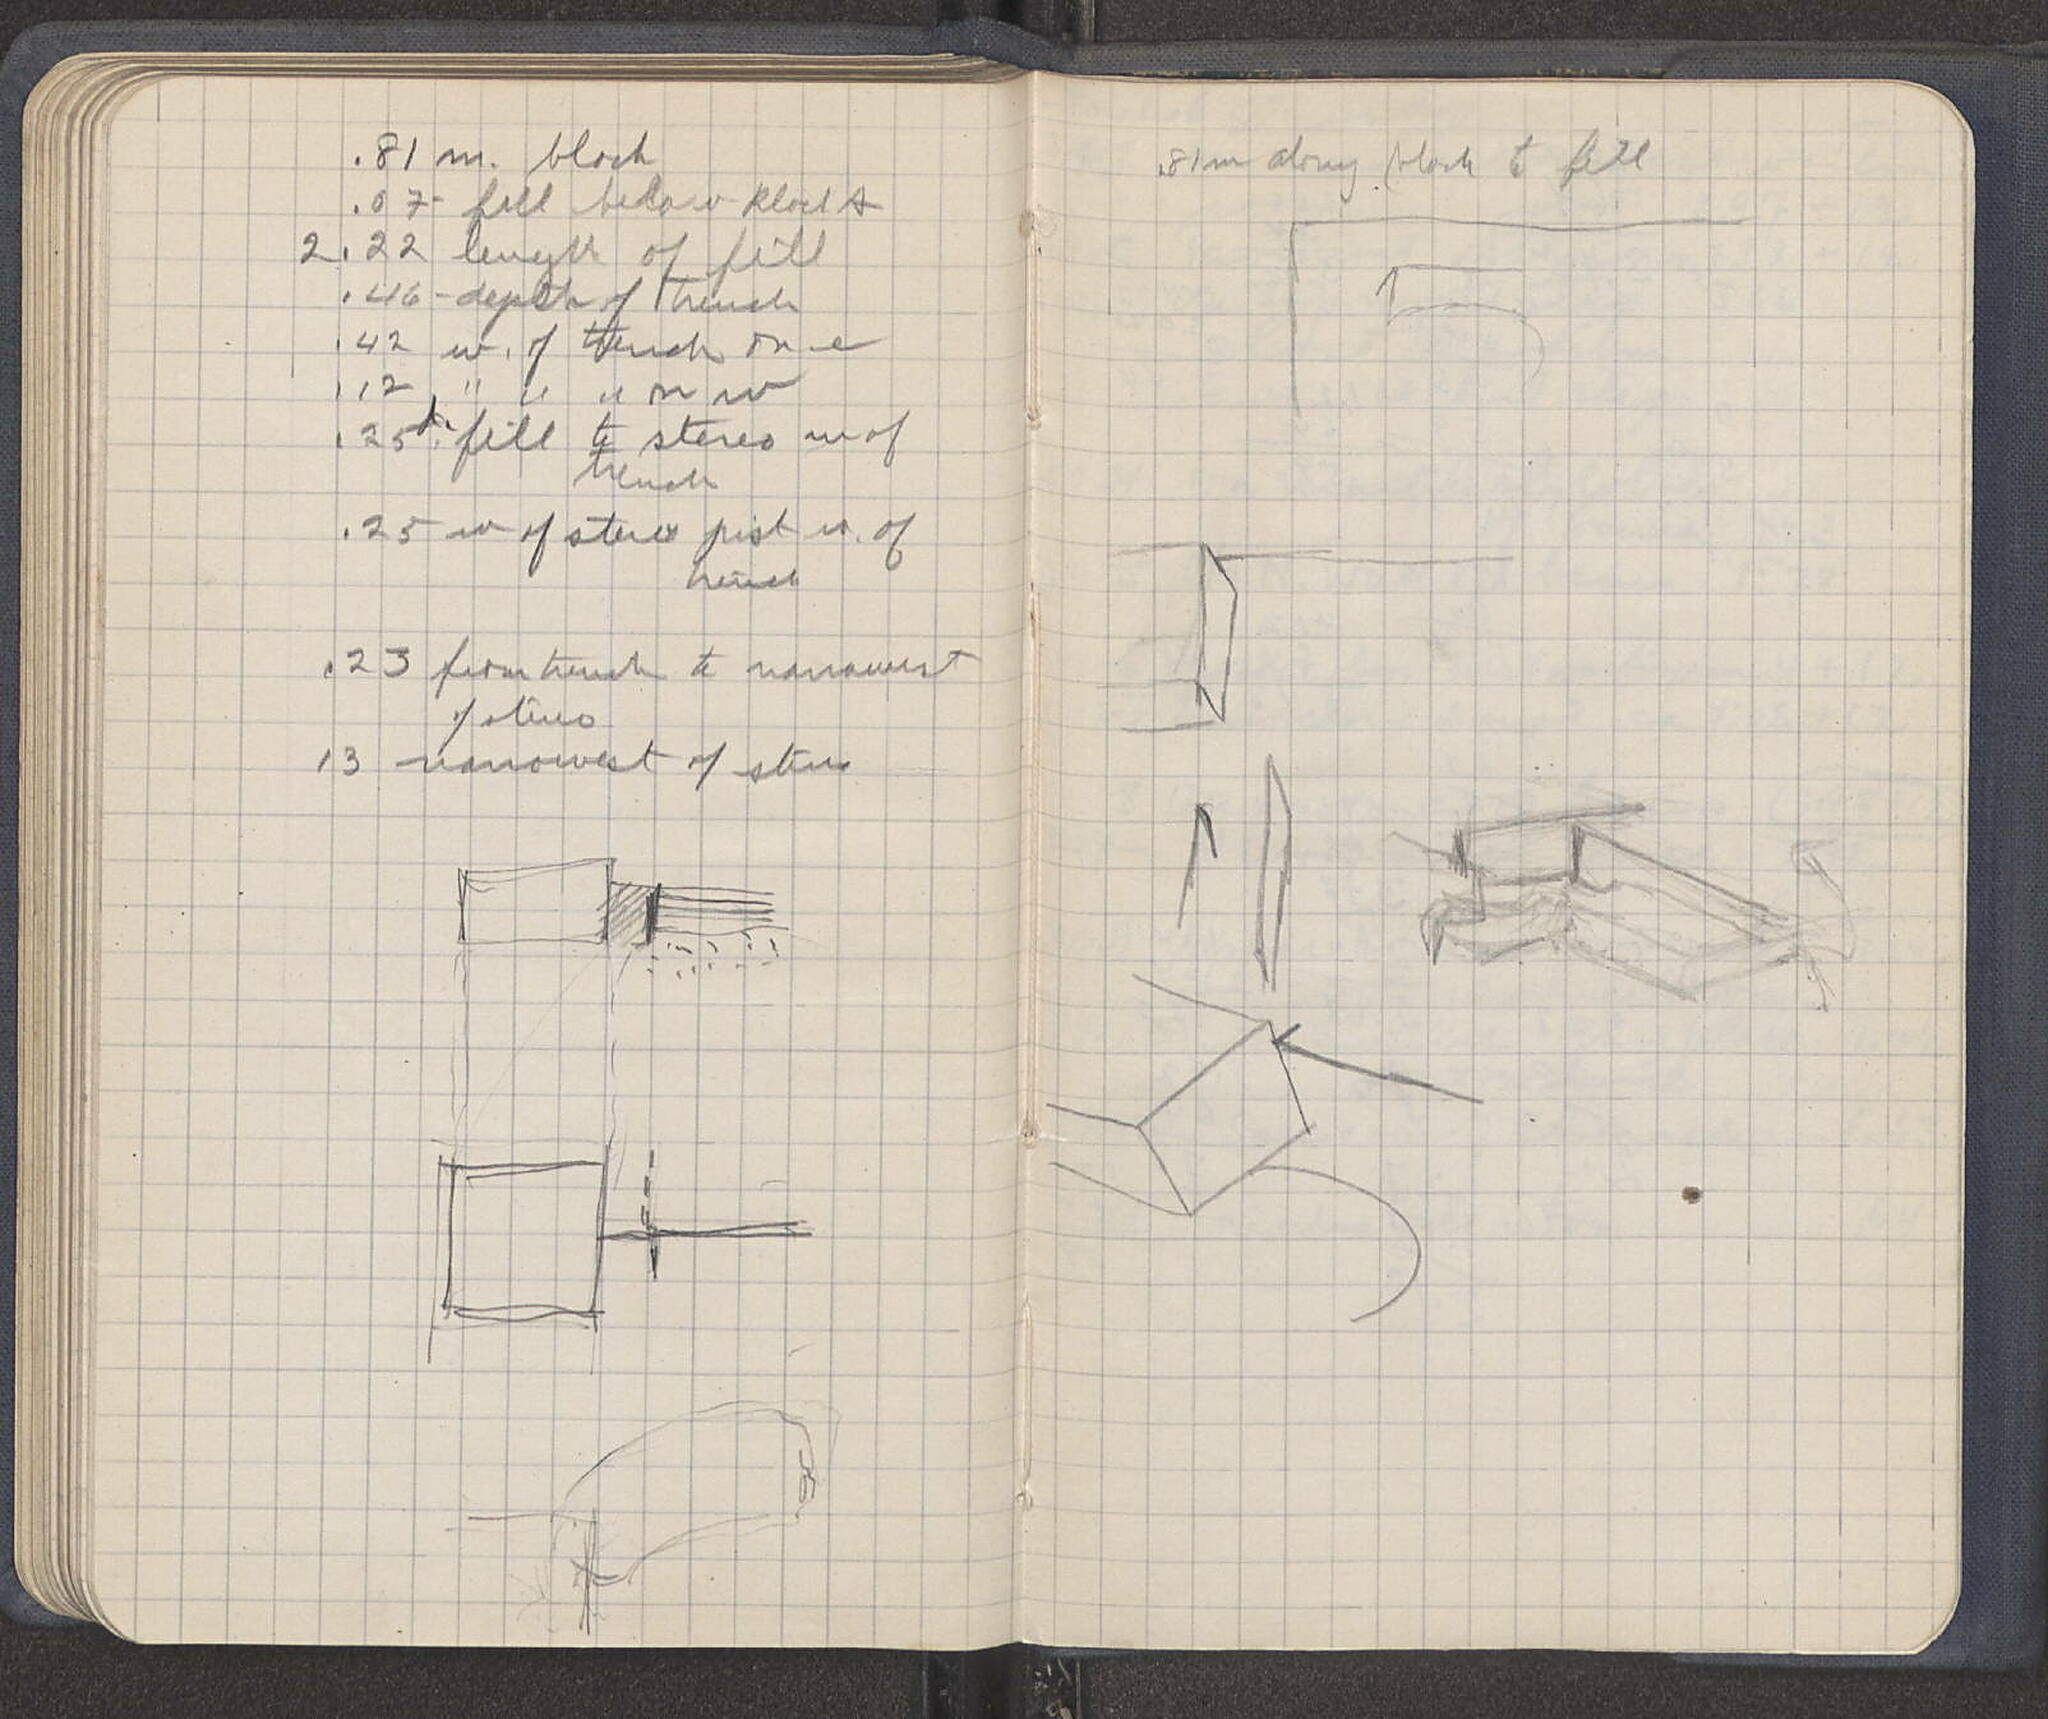 .81 m. block
.07- fill below blocks
2.22 length of fill
.46 - depth of trench
.42 w. of trench on e
.12 " " " on w
.25 d. fill to stereo w of
trench
.25 w of stereo just w. of
trench
.23 from trench to narrowest
of stereo
13 narrowest of stereo
.81 m along block to fill